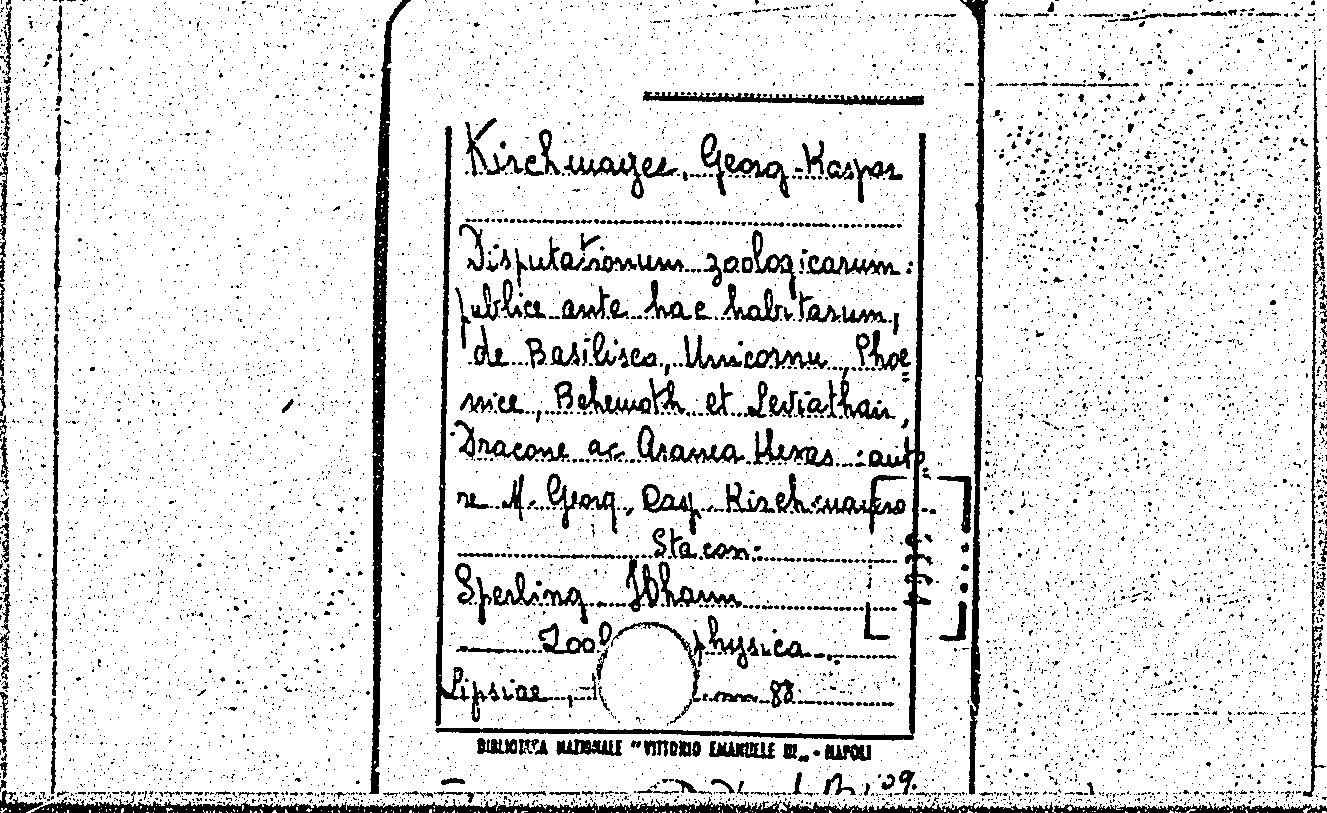 Kirchmayer, Georg-Kaspar
Disputationum zoologicarum:
publice ante hac habitarum,
de Basilisco, Unicornu, Phoe=
nice, Behemoth et Leviathan,
Dracone ac Aranea Hexas: auto=
re M. Georg. Casp. Kirchmayero
Sta con:
Sperling Johann
Zool physica
Lipsiae, 88
BIBLIOTECA NAZIONALE "VITTORIO EMANUELE III" - NAPOLI